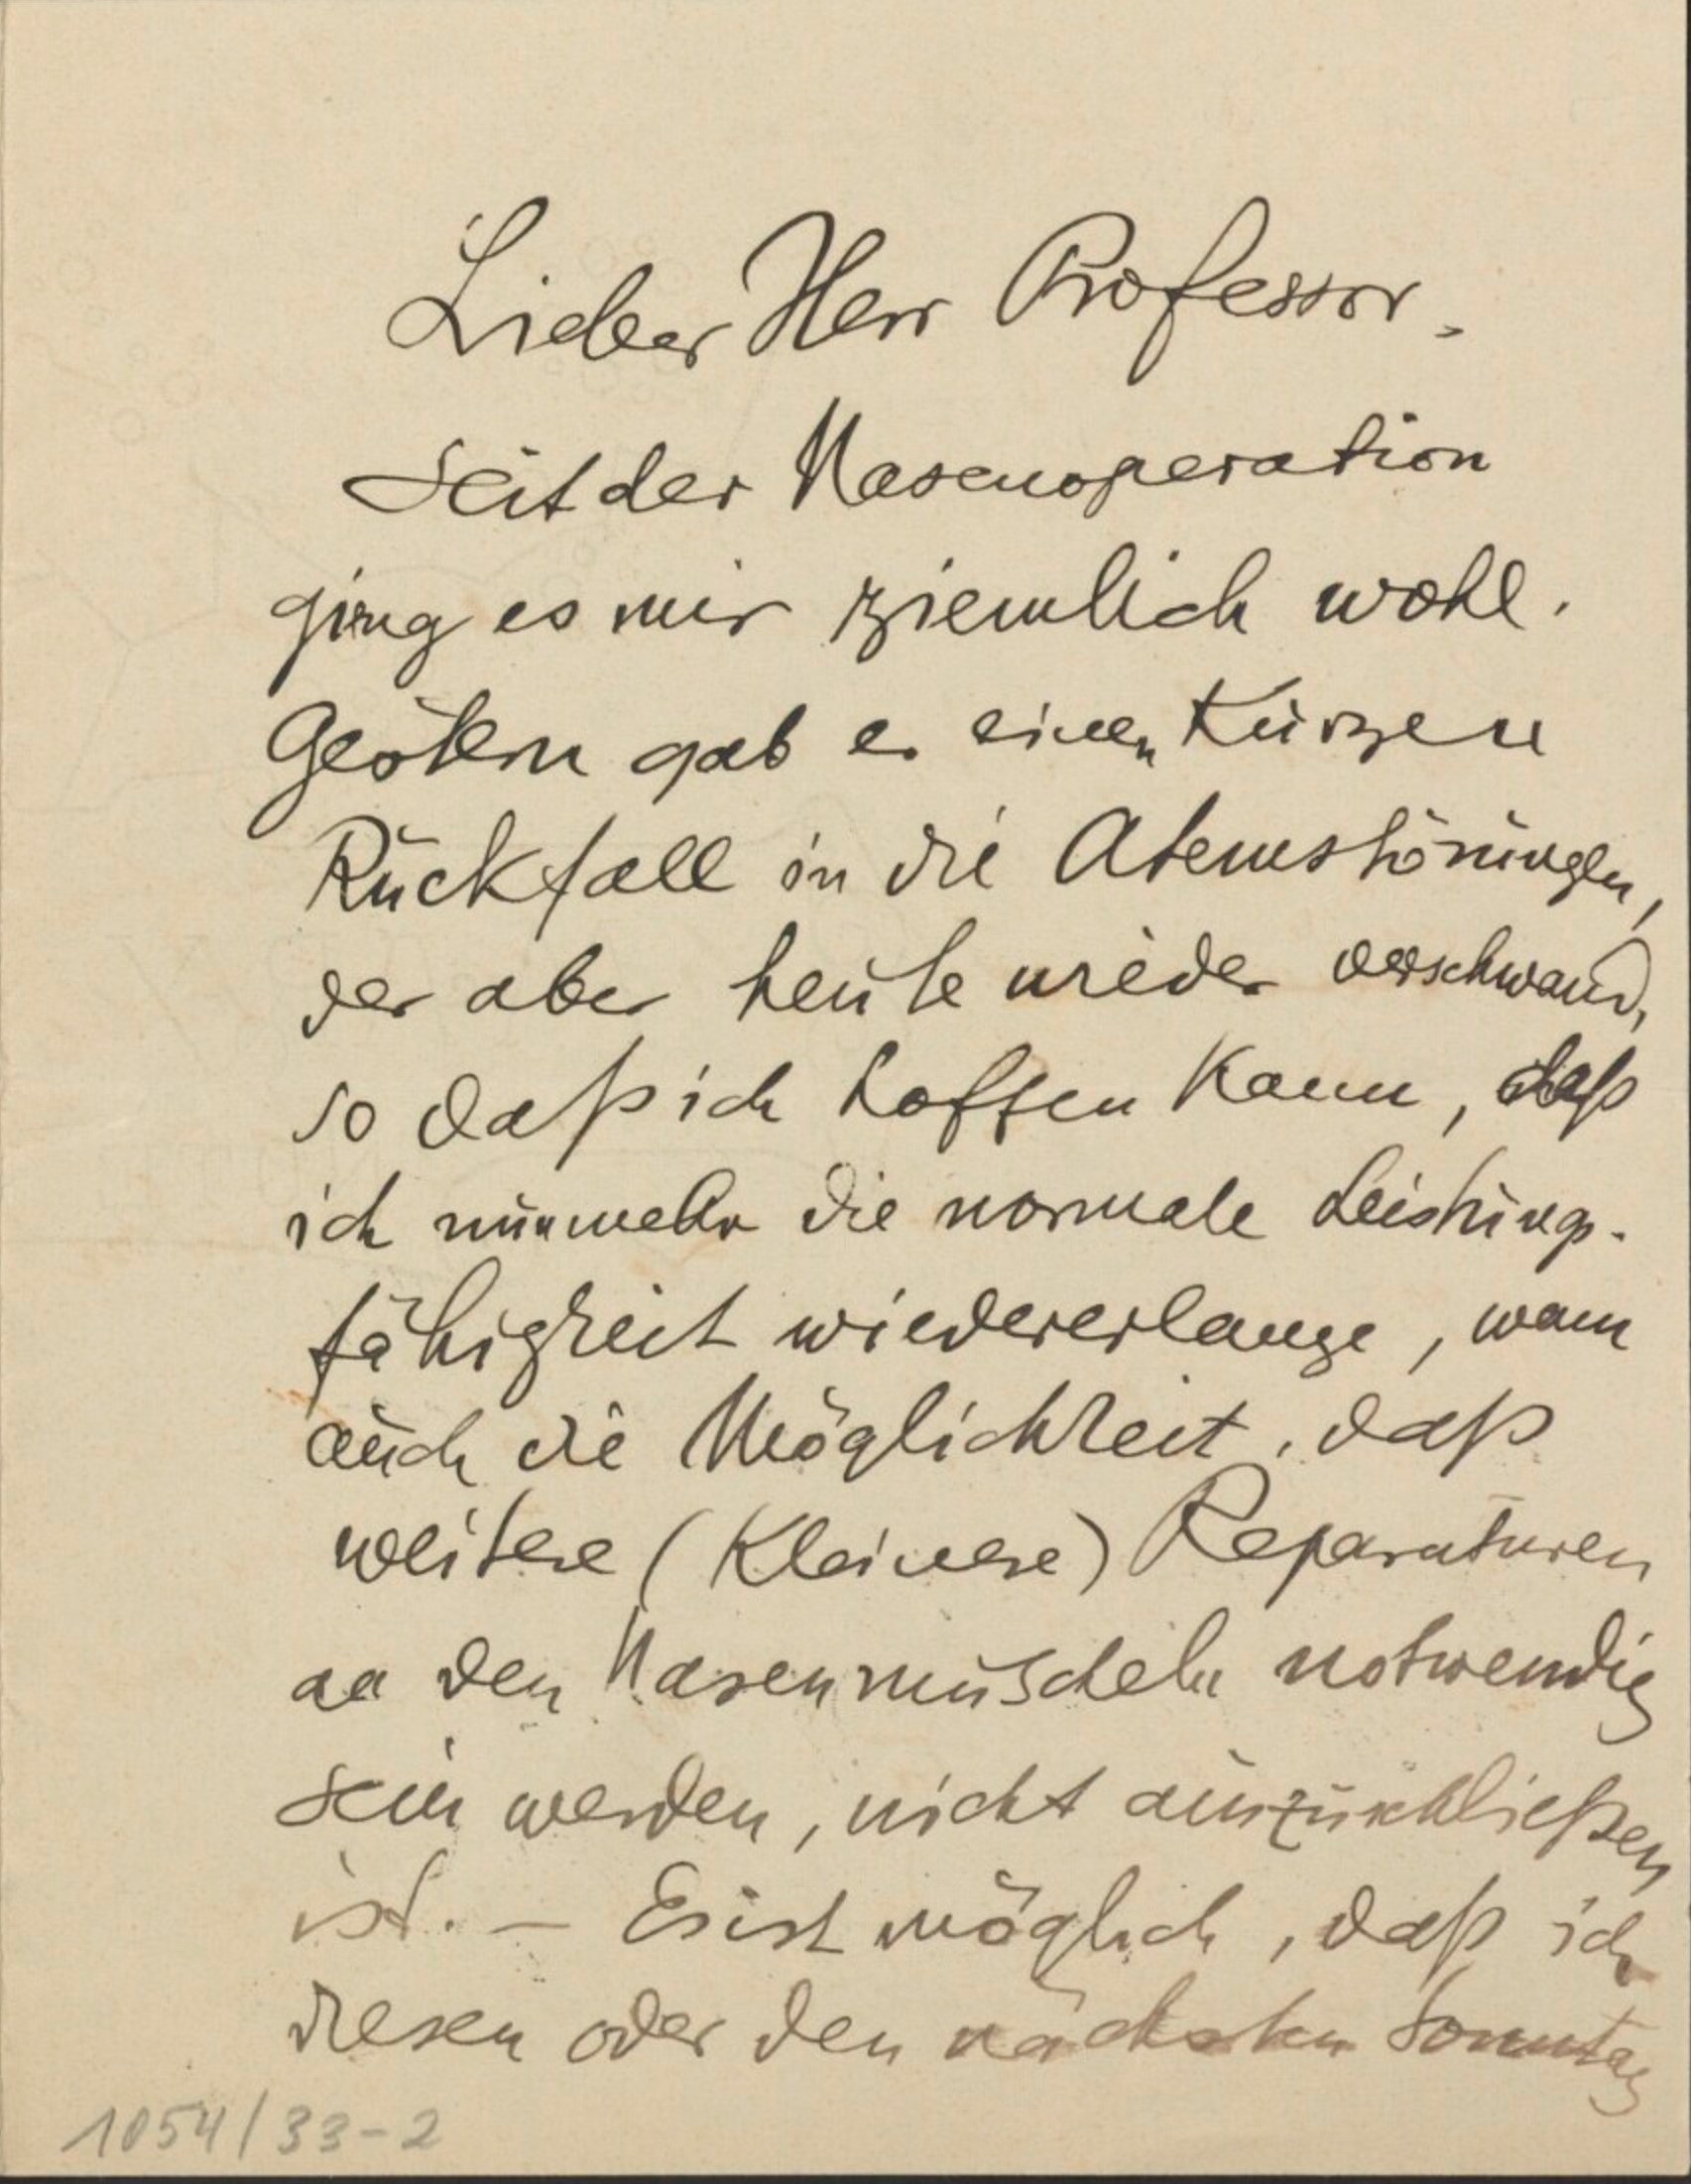 Lieber Herr Professor.
Seit der Nasenoperation
ging es mir ziemlich wohl.
Gestern gab es einen kurzen
Rückfall in die Atemstörungen,
der aber heute wieder verschwand,
so daß ich hoffen kann, daß
ich nunmehr die normale Leistungs-
fähigkeit wiedererlange, wann
auch die Möglichkeit, daß
weitere (kleinere) Reparaturen
an den Nasenmuscheln notwendig
sein werden, nicht auszuschließen
ist. — Es ist möglich, daß ich
diesen oder den nächsten Sonntag
1054/33-2